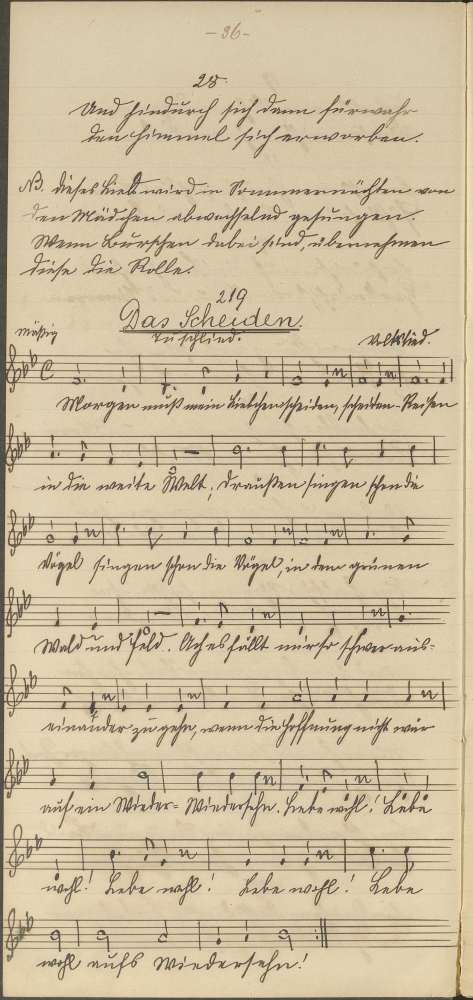 - 36 -
28.
Und hindurch sich dann fürwahr
den Himmel sich erworben.
NB. Dieses Lied wird in Sommernächten von
den Mädchen abwechselnd gesungen.
Wenn Burschen dabei sind, übernehmen
diese die Rolle.
219
Das Scheiden.
mäßig
Volkslied.
Morgen muß mein Liebchen scheiden, scheiden - Reisen
in die weite Welt; draußen singen schon die
Vögel singen schon die Vögel, in dem grünen
Wald und Feld. Ach es fällt mir so schwer aus-
einander zu gehn, wenn die Hoffnung nicht wär
auf ein Wieder- Wiedersehn. Lebe wohl! Lebe
wohl! Lebe wohl! Lebe wohl! Lebe
wohl aufs Wiedersehn!